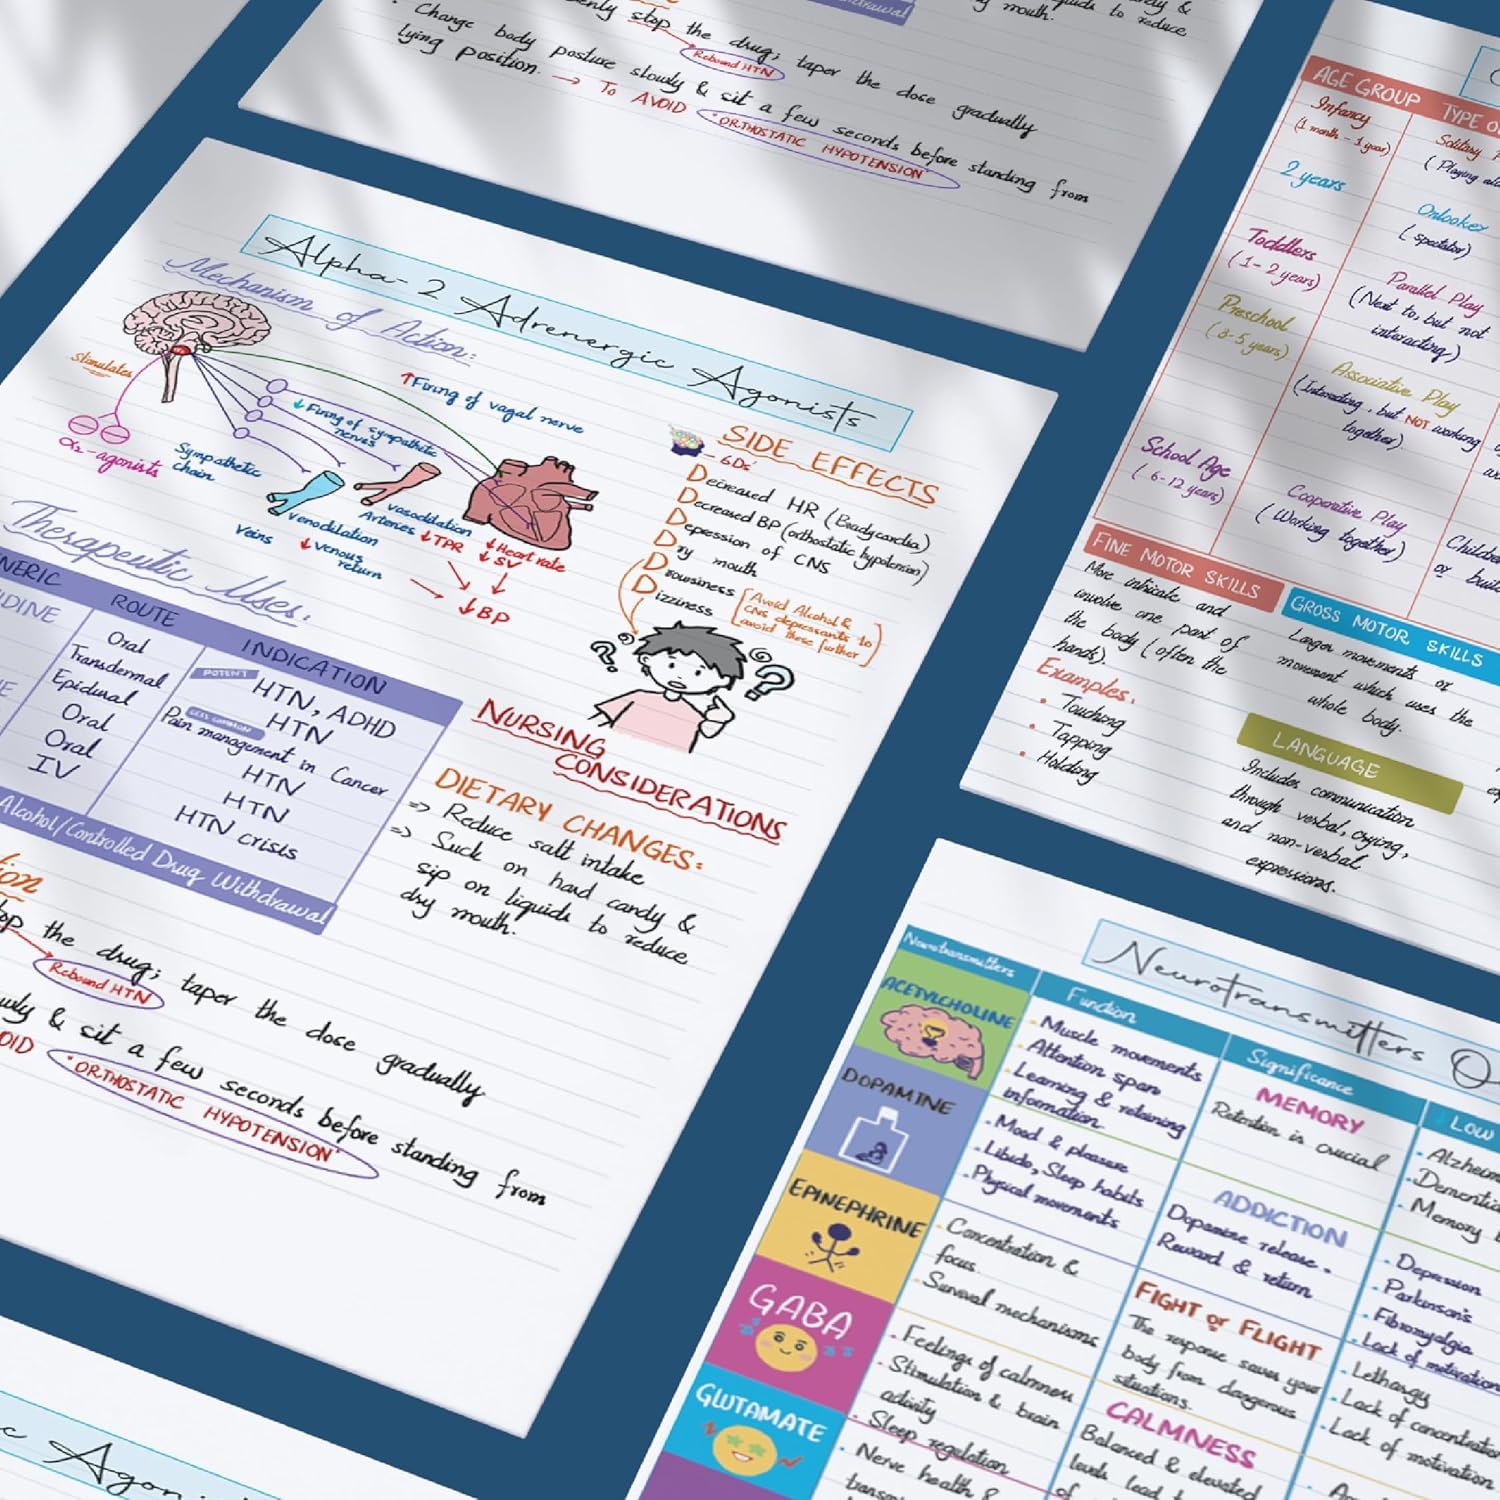 stop the drug; taper the dose gradually
Rebound HTN
Change body posture slowly & sit a few seconds before standing from
lying position. → To AVOID "ORTHOSTATIC HYPOTENSION"
mouth.
to reduce
Alpha-2 Adrenergic Agonists
Mechanism of Action:
stimulates
α₂-agonists
Sympathetic
chain
↑Firing of vagal nerve
↓Firing of sympathetic
nerves
Veins
venodilation
↓Venous
return
Arteries
vasodilation
↓TPR
↓Heart rate
↓SV
↓BP
SIDE EFFECTS
- 6Ds'
Decreased HR (Bradycardia)
Decreased BP (orthostatic hypotension)
Depression of CNS
Dry mouth
Drowsiness
Dizziness
[Avoid Alcohol &
CNS depressants to
avoid these further]
Therapeutic Uses:
ROUTE
INDICATION
Oral
Transdermal
Epidural
Oral
Oral
IV
POTENT
HTN, ADHD
LESS COMMON
HTN
Pain management in Cancer
HTN
HTN
HTN crisis
Alcohol/Controlled Drug Withdrawal
NURSING
CONSIDERATIONS
DIETARY CHANGES:
=> Reduce salt intake
=> Suck on hard candy &
sip on liquids to reduce
dry mouth.
the drug; taper the dose gradually
Rebound HTN
& sit a few seconds before standing from
"ORTHOSTATIC HYPOTENSION"
AGE GROUP
TYPE
Infancy
(1 month - 1 year)
Solitary
(Playing
2 years
Onlooker
(spectator)
Toddlers
(1-2 years)
Parallel Play
(Next to, but not
interacting)
Preschool
(3-5 years)
Associative Play
(Interacting, but NOT working
together)
School Age
(6-12 years)
Cooperative Play
(Working together)
or
FINE MOTOR SKILLS
More intricate and
involve one part of
the body (often the
hands).
Examples:
• Touching
• Tapping
• Holding
GROSS MOTOR SKILLS
Larger movements or
movement which uses the
whole body.
LANGUAGE
Includes communication
through verbal, crying,
and non-verbal
expressions.
Neurotransmitters
Neurotransmitters
Function
Significance
LOW
ACETYLCHOLINE
- Muscle movements
- Attention span
- Learning & retaining
information.
MEMORY
Retention is crucial
- Memory
DOPAMINE
- Mood & pleasure
- Libido, Sleep habits
- Physical movements
ADDICTION
Dopamine release -
Reward & return
- Depression
- Parkinson's
- Fibromyalgia
- Lack of motivation
EPINEPHRINE
- Concentration &
focus.
- Survival mechanisms
FIGHT or FLIGHT
The response saves your
body from dangerous
situations.
- Lethargy
- Lack of concentration
- Lack of motivation
GABA
- Feelings of calmness
- Stimulation & brain
activity
- Sleep regulation
CALMNESS
Balanced & elevated
levels lead
GLUTAMATE
- Nerve health &
Agon